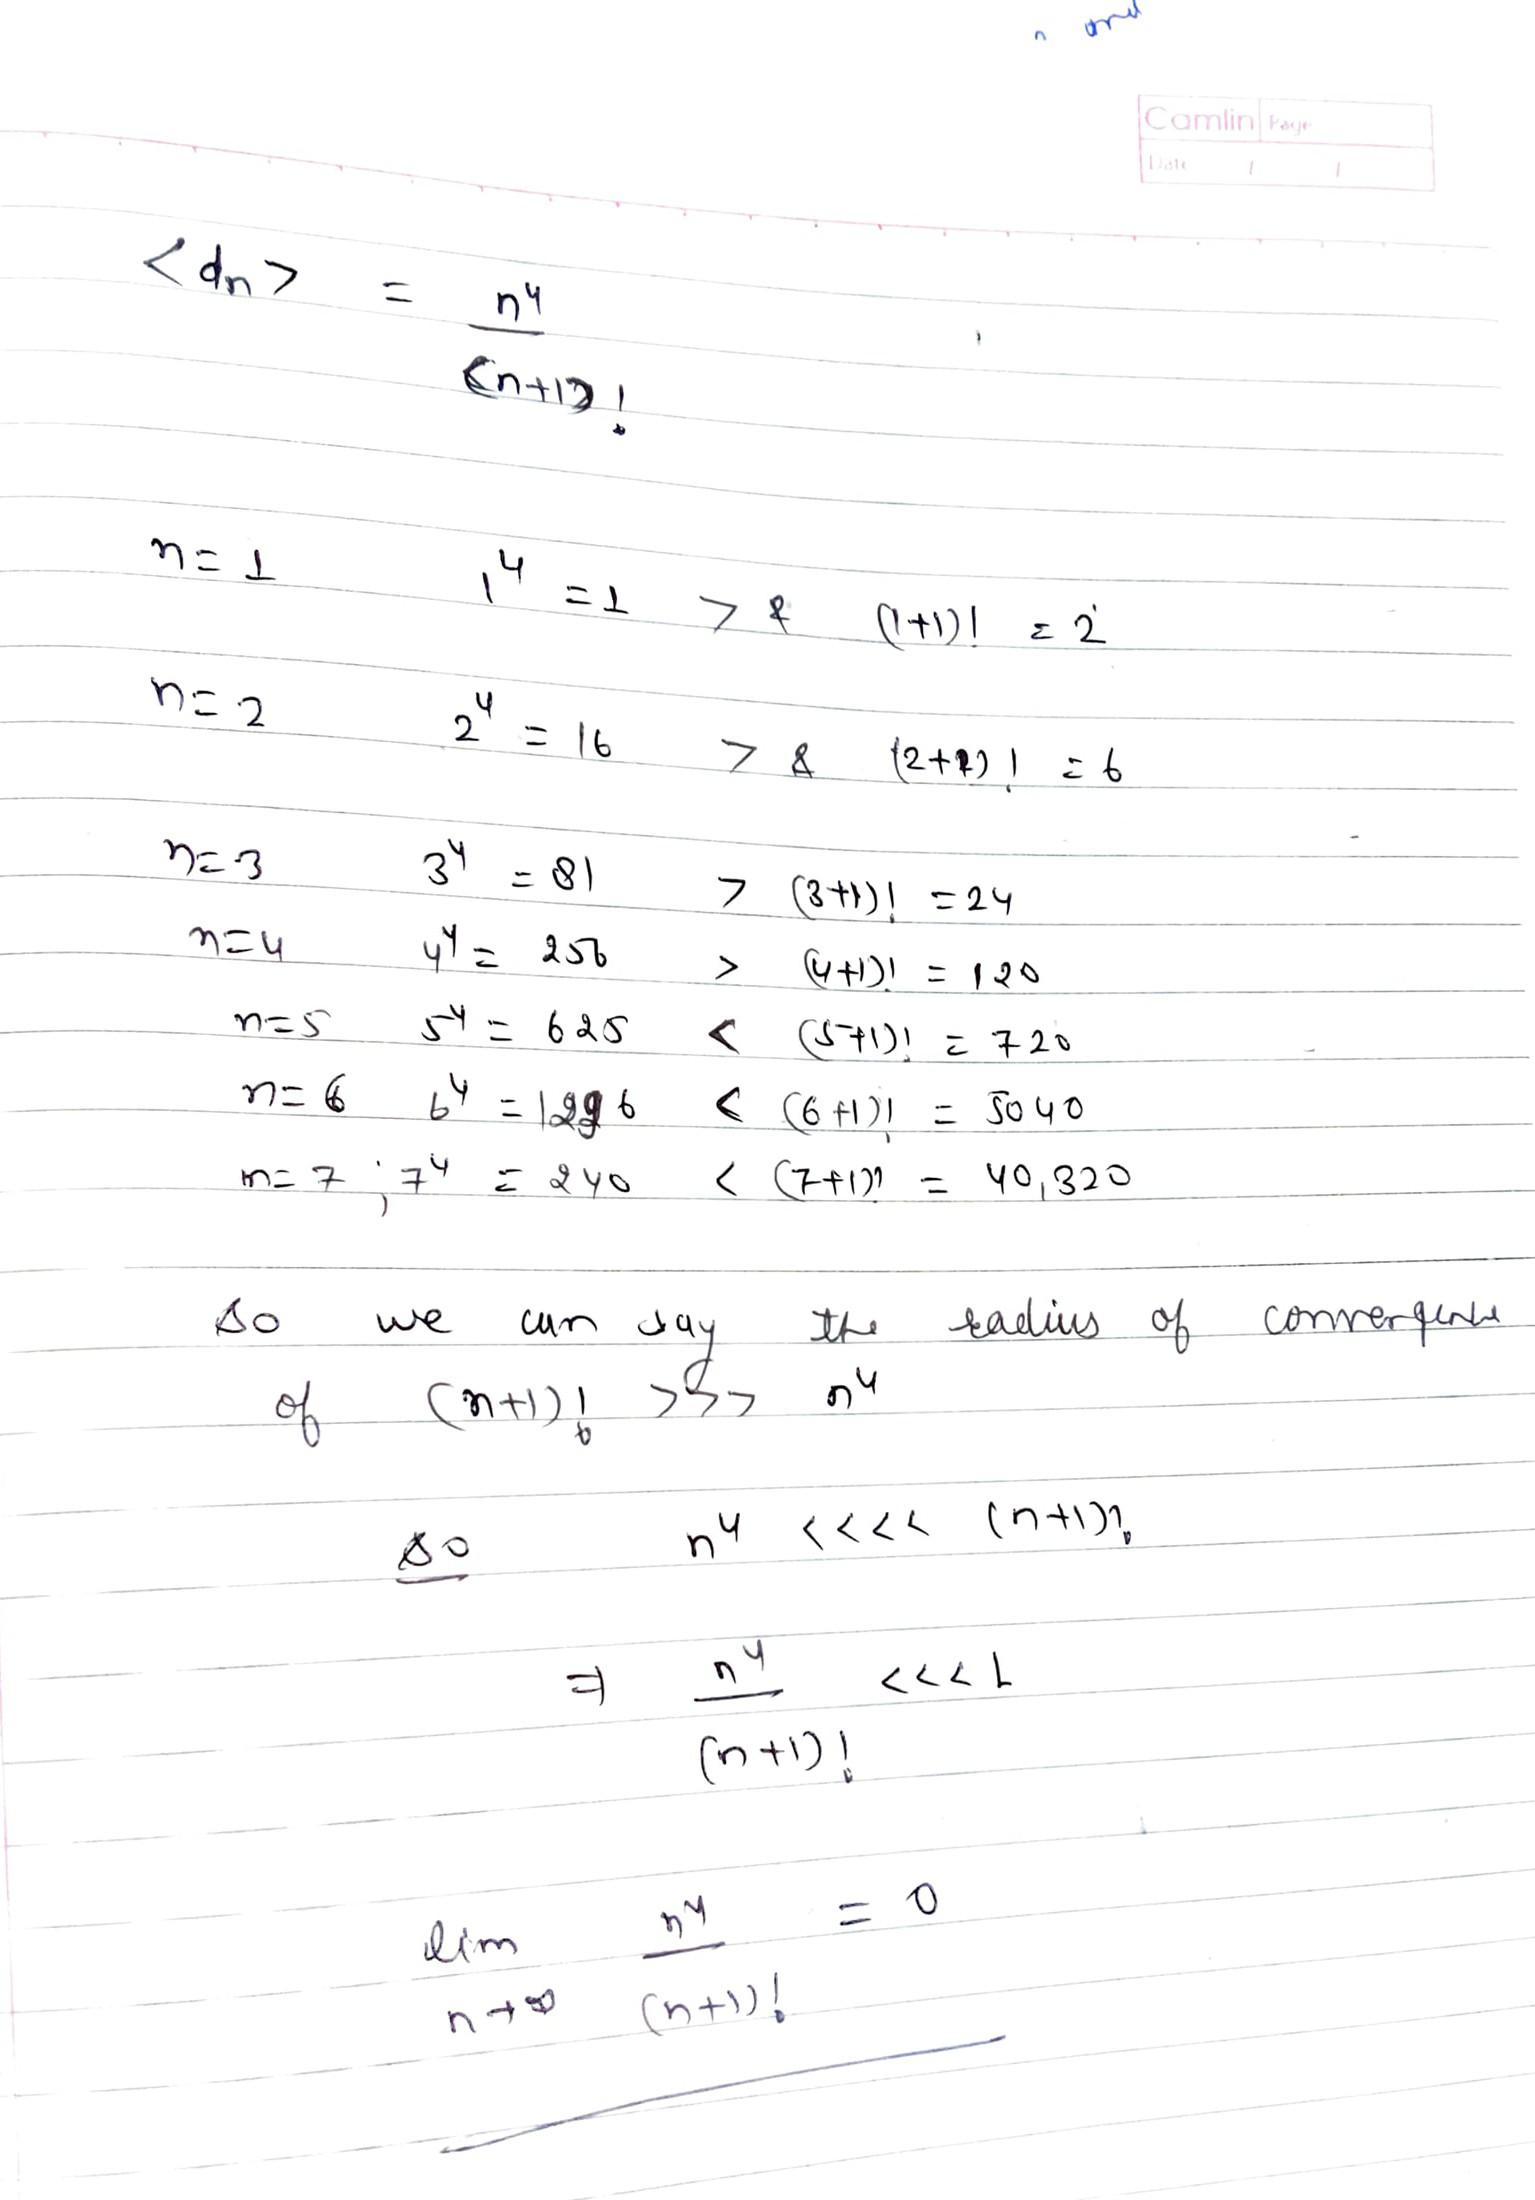 n and
Camlin Page
Date / /
<dn> = n⁴
(n+1)!
n=1 1⁴ =1 > & (1+1)! = 2
n=2 2⁴ = 16 > & (2+1)! = 6
n=3 3⁴ = 81 > (3+1)! = 24
n=4 4⁴ = 256 > (4+1)! = 120
n=5 5⁴ = 625 < (5+1)! = 720
n=6 6⁴ = 1296 < (6+1)! = 5040
n=7 ; 7⁴ = 240 < (7+1)! = 40,320
So we can say the radius of convergence
of (n+1)! >>> n⁴
So n⁴ <<<< (n+1)!
⇒ n⁴ <<< 1
(n+1)!
lim n⁴ = 0
n→∞ (n+1)!